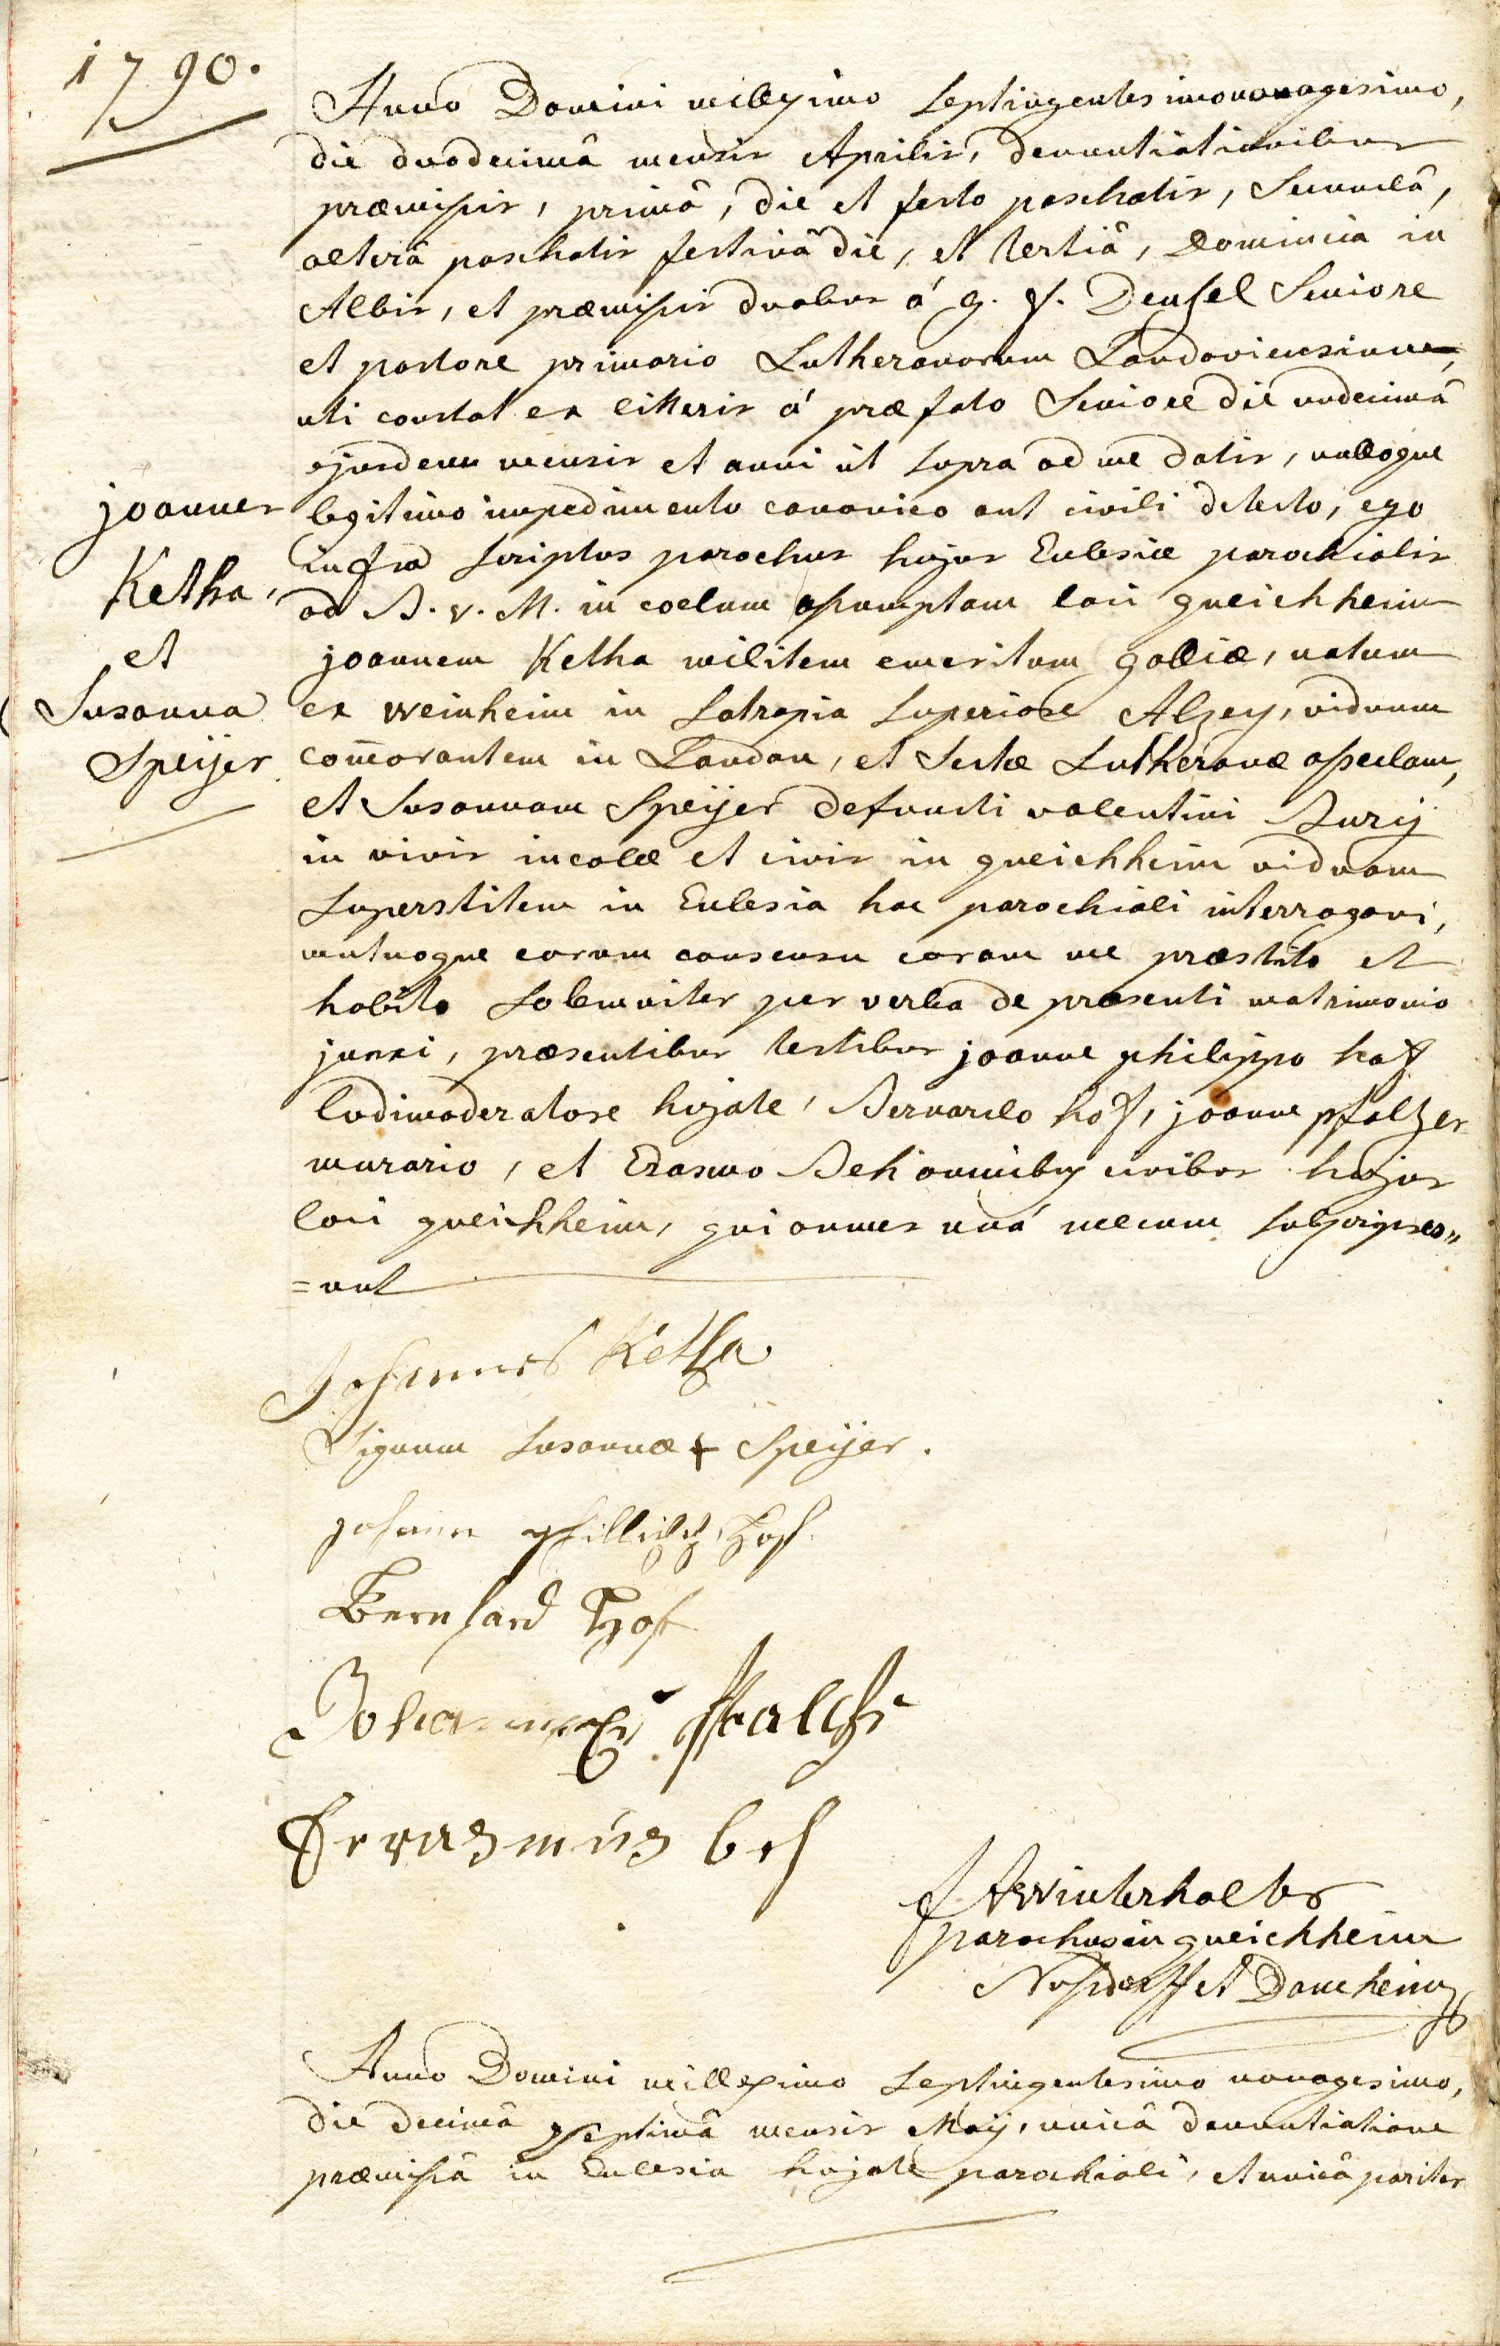 1790.
Anno Domini millesimo Septingentesimo nonagesimo,
die duodecimâ mensis Aprilis, denuntiationibus
præmissis, primâ, die et festo paschatis, Secundâ,
alterâ paschatis festivâ die, et tertiâ, Dominica in
Albis, et præmissis duabus á g. f. Deusel Seniore
et pastore primario Lutheranorum Landaviensium,
uti constat ex litteris á præfato Seniore die undecimâ
ejusdem mensis et anni ut supra ad me datis, nulloque
legitimo impedimento canonico aut civili detecto, ego
infra scriptus parochus hujus Ecclesiæ parochialis
ad B. v. M. in coelum assumptam loci queichheim
joannes
Ketha,
et
Susanna
Speijer
joannem Ketha militem emeritum galliæ, natum
ex weinheim in Satrapia superiore Alzey, viduum
com̄orantem in Landau, et Sectæ Lutheranæ asseclam,
et Susannam Speijer defuncti valentini Burij
in vivis incolæ et civis in queichheim viduam
superstitem in Ecclesia hac parochiali interrogavi,
mutuoque eorum consensu coram me præstito et
habito solemniter per verba de præsenti matrimonio
junxi, præsentibus testibus joanne philippo hof
ludimoderatore hujate, Bernardo hof, joanne pfaltzer
murario, et Erasmo Beh omnibus civibus hujus
loci queichheim, qui omnes unâ mecum subscripser„
=unt
Johannes Ketha
Signum Susannæ + Speijer.
Johann Phillipp Hof.
Bernhard Hof
Johannes
Erasmus beh
winterhalter
parochus in queichheim
Nusdorff et Damheim
Anno Domini millesimo Septingentesimo nonagesimo,
die decimâ septimâ mensis Maij, unicâ denuntiatione
præmissâ in Ecclesia hujate parochiali, et unicâ pariter